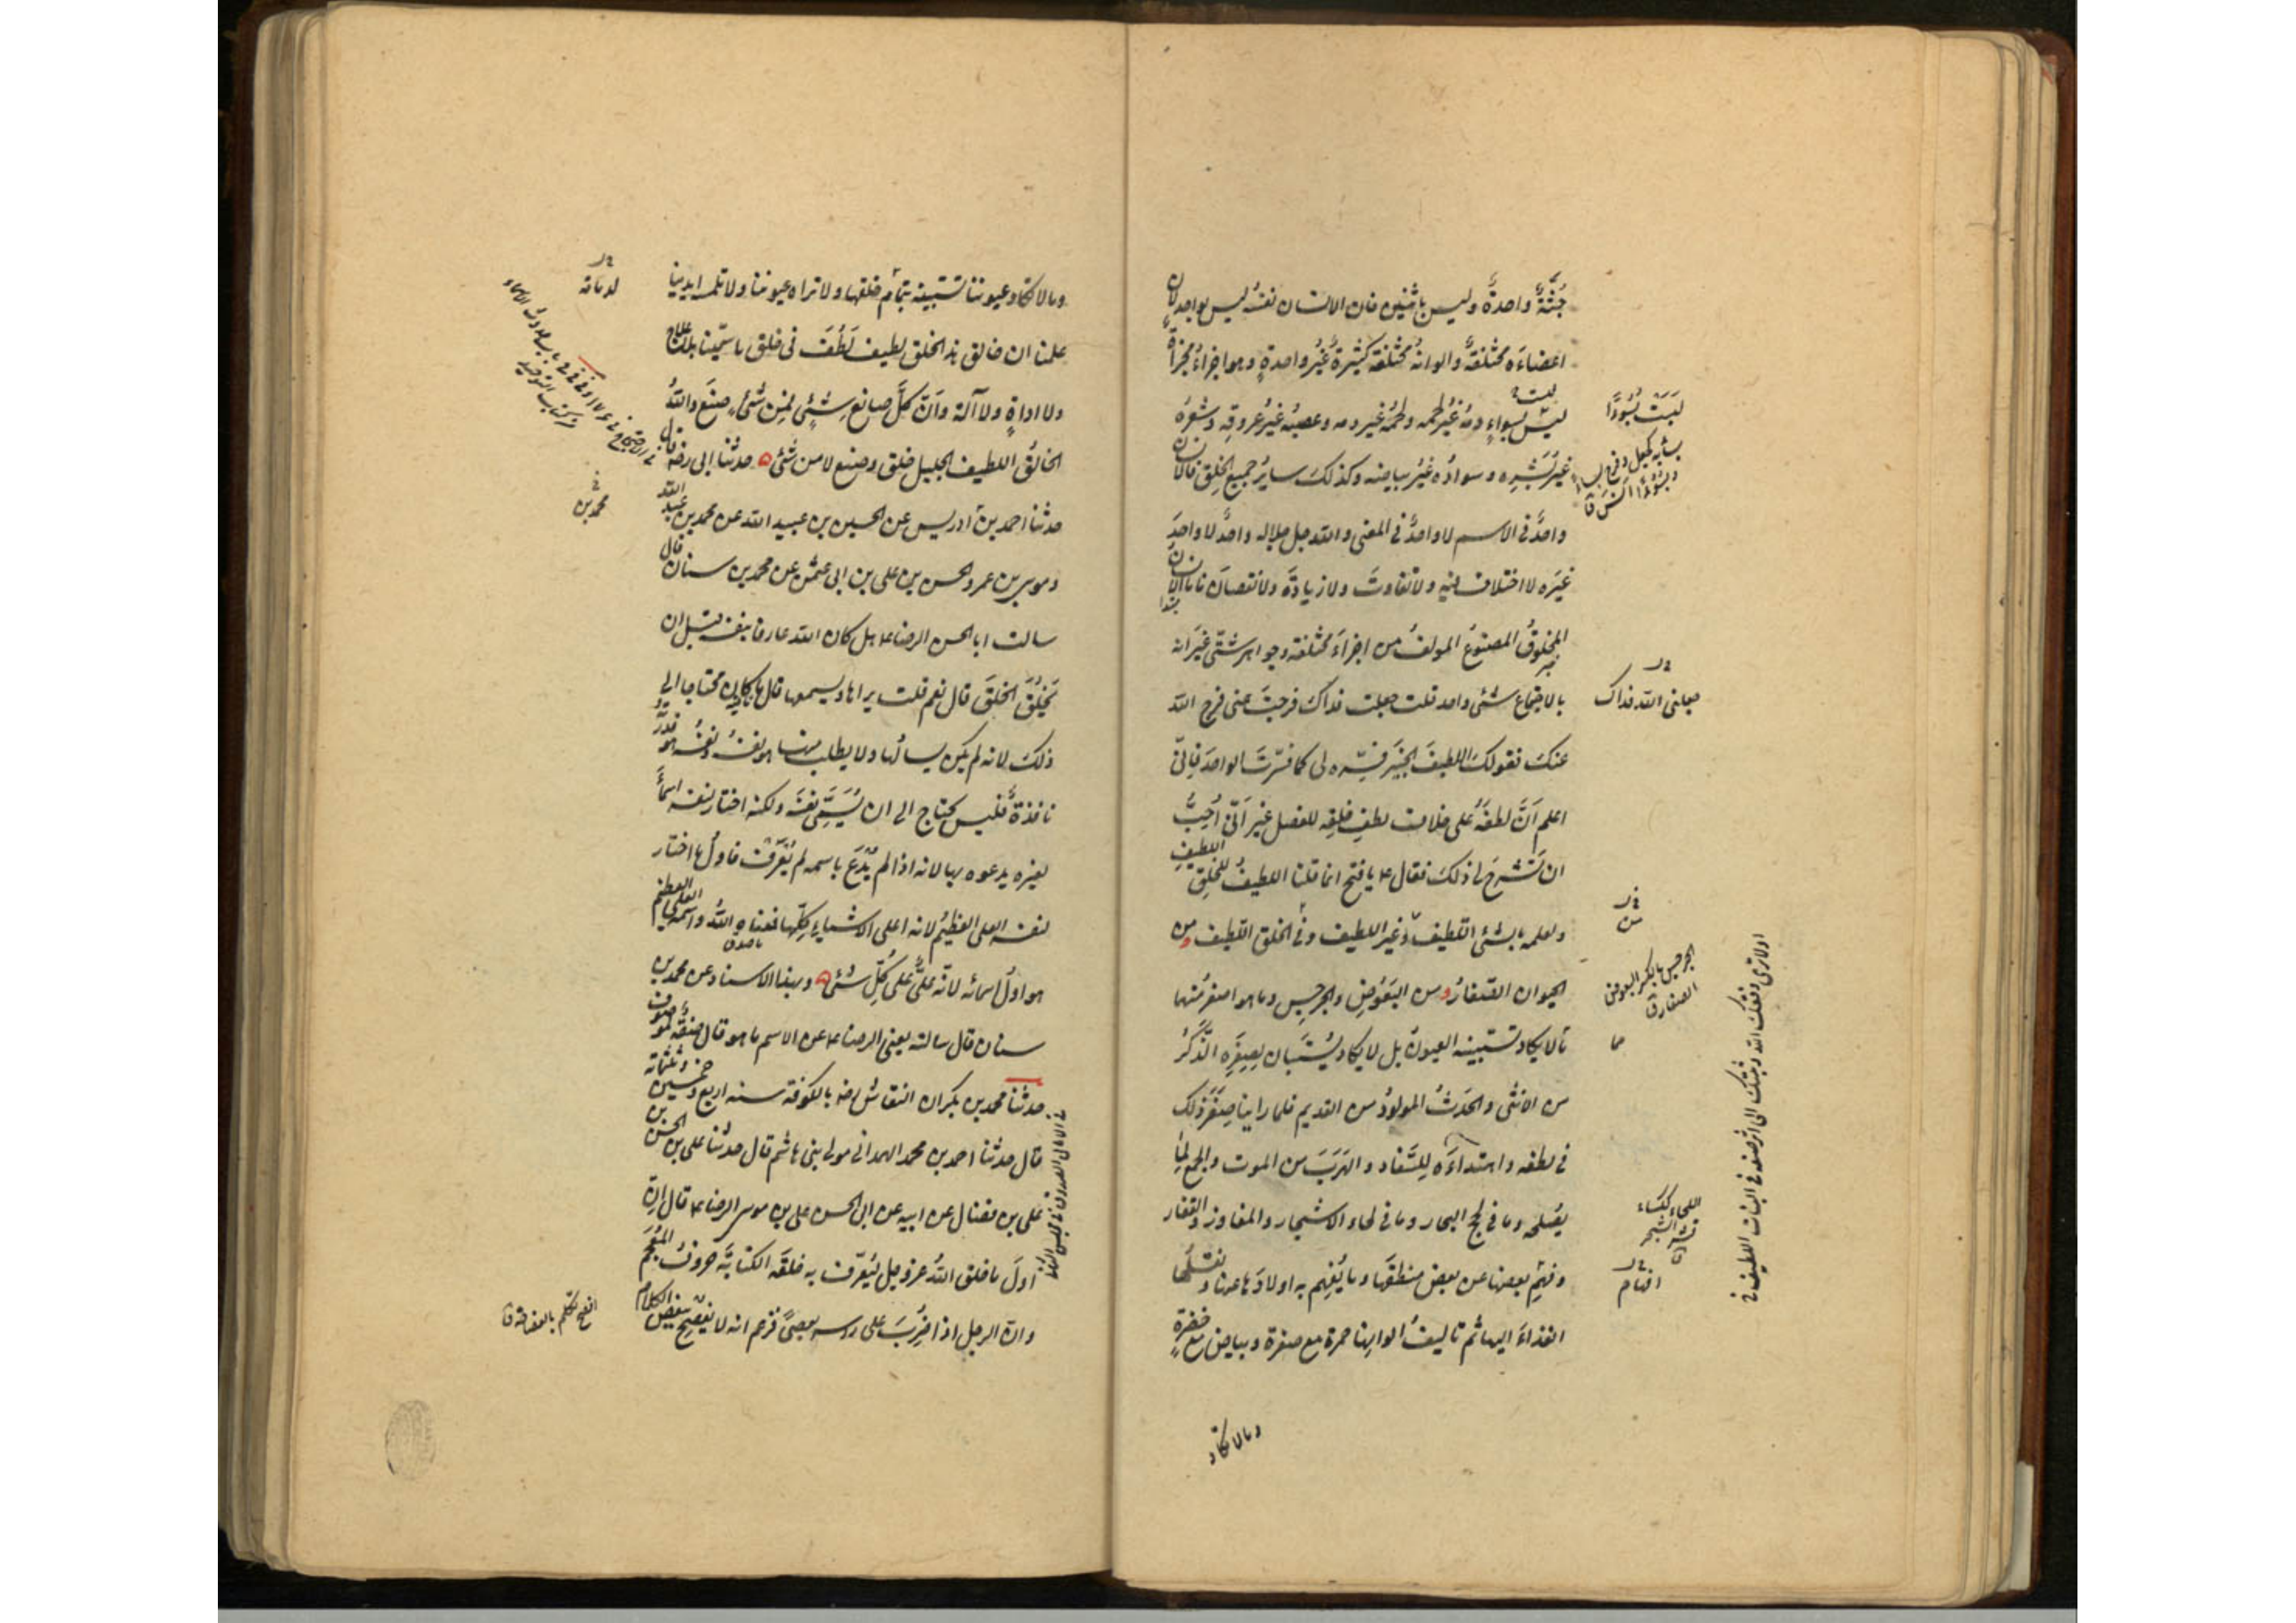 جُثَّةٌ واحدةٌ وليس باثنين فان الانسان نفسُه ليس بواحدٍ لان
اعضاءَه مختلفةٌ والوانه مختلفة كثيرةٌ غيرُ واحدةٍ وهو اجزاءٌ مجزأةٌ
ليس بسواءٍ دمُه غيرُ لحمه ولحمُه غير دمه وعصبُه غيرُ عروقِه وشعرُه
غيرُ بَشَرِه وسوادُه غيرُ بياضه وكذلكَ سايرُ جميع الخلق فالانسان
واحدٌ فى الاسم لا واحدٌ فى المعنى والله جل جلاله واحدٌ لا واحدَ
غيرَه لا اختلافَ فيه ولا تفاوتَ ولا زيادةَ ولا نقصانَ فاما الانسان
المخلوقُ المصنوعُ المولفُ من اجزاءَ مختلفة وجواهر شتّى غيرَ انه
بالاجتماع شئى واحد قلت جعلت فداكَ فرجتَ عنى فرج الله
عنكَ فقولكَ اللطيفَ الخبيرَ فسِّره لى كما فسّرتَ الواحدَ فانّى
اعلم اَنَّ لطفَهُ على خلاف لطفِ خلقِه للفصل غير اَنّى اُحِبُّ
ان تَشْرحَ لى ذلكَ فقال ع يا فتح انما قلنا اللطيفُ للخلق اللطيفِ
ولعلمه بالشئى اللطيف وغير اللطيف وفى الخلق اللطيف من
الحيوان الصّغارُ ومن البَعُوضِ والجرجِسِ وما هو اصغرُ منها
مالا يكاد تستبينه العيونُ بل لا يكاد يُستَبان لِصِغَرِه الذَّكَرُ
من الانثى والحَدَثُ المولودُ من القديم فلما راينا صِغَرَ ذلك
فى لطفه واهتداءَه لِلسِّفاد والهَرَبَ من الموت والجمع لِما
يُصلحه وما فى لجج البحار وما فى لحاء الاشجار والمفاوز والقفار
وفهم بعضها عن بعض منطقَها وما يُفهِم به اولادَها عنها ونقلَها
الغذاءَ اليها ثم تاليفُ الوانِها حمرة مع صفرة وبياض مع خضرةٍ
وما لا تكاد
ليسَتْ بسَواءً
جعلنى الله فداك
من
الجرجس بالكسر البعوض
الصغار ق
مما
اللحاء ككساء
قشر الشجر
ق
افهام
اولا ترى وفقك الله وثبتك الى اثر صنعه فى النبات اللطيف و
وما لا تكاد عيوننا تستبينه بتمام خلقها ولا تراه عيوننا ولا تلمسه ايدينا
علمنا ان خالق هذا الخلق لطيف لَطُفَ فى خلق ما سمّينا بلا علاج
ولا اداةٍ ولا آلة واَنّ كلَّ صانعِ شئىٍ فمِن شئىٍ صنَع واللهُ
الخالقُ اللطيف الجليل خلق وصنع لا من شئى حدثنا ابى رضه قال
حدثنا احمد بن ادريس عن الحسين بن عبيد الله عن محمد بن عبد الله
وموسى بن عمر والحسن بن على بن ابى عثمن عن محمد بن سنان قال
سالت ابا الحسن الرضا ع هل كان الله عارفا بنفسه قبل ان
يَخْلُقَ الخلقَ قال نعم قلت يراها ويسمعها قال ما كان محتاجا الى
ذلكَ لانه لم يكن يسالُها ولا يطلب منها هو نفسُه ونفسُه هو قدرتُه
نافذةٌ فليس يحتاج الى ان يُسَمِّىَ نفسَه ولكنه اختار لنفسه اسماءً
لغيره يدعوه بها لانه اذا لم يُدْعَ باسمه لم يُعْرَفْ فاول ما اختار
لنفسه العلى العظيمُ لانه اعلى الاشياءِ كلِّها فمعناه اللهُ واسمه العلى العظيم
هو اولُ اسمائه لانّه علىٌّ على كُلِّ شئى وبهذا الاسناد عن محمد بن
سنان قال سالته يعنى الرضا ع عن الاسم ما هو قال صفةٌ لموصوف
حدثنا محمد بن بكران النقاش رضه بالكوفة سنه اربع وخمسين وثلثمائة
قال حدثنا احمد بن محمد الهمدانى مولى بنى هاشم قال حدثنا على بن الحسن بن
على بن فضال عن ابيه عن ابى الحسن على بن موسى الرضا ع قال اِنّ
اولَ ما خلق اللهُ عز وجل ليُعرّفَ به خلقَه الكتابةَ حروفُ المُعْجَم
وانّ الرجل اذا ضُرِبَ على راسه بعصىً فزعم انه لا يُفْصِحُ ببعض الكلام
محمد بن
افصح تكلم بالفصاحة ق